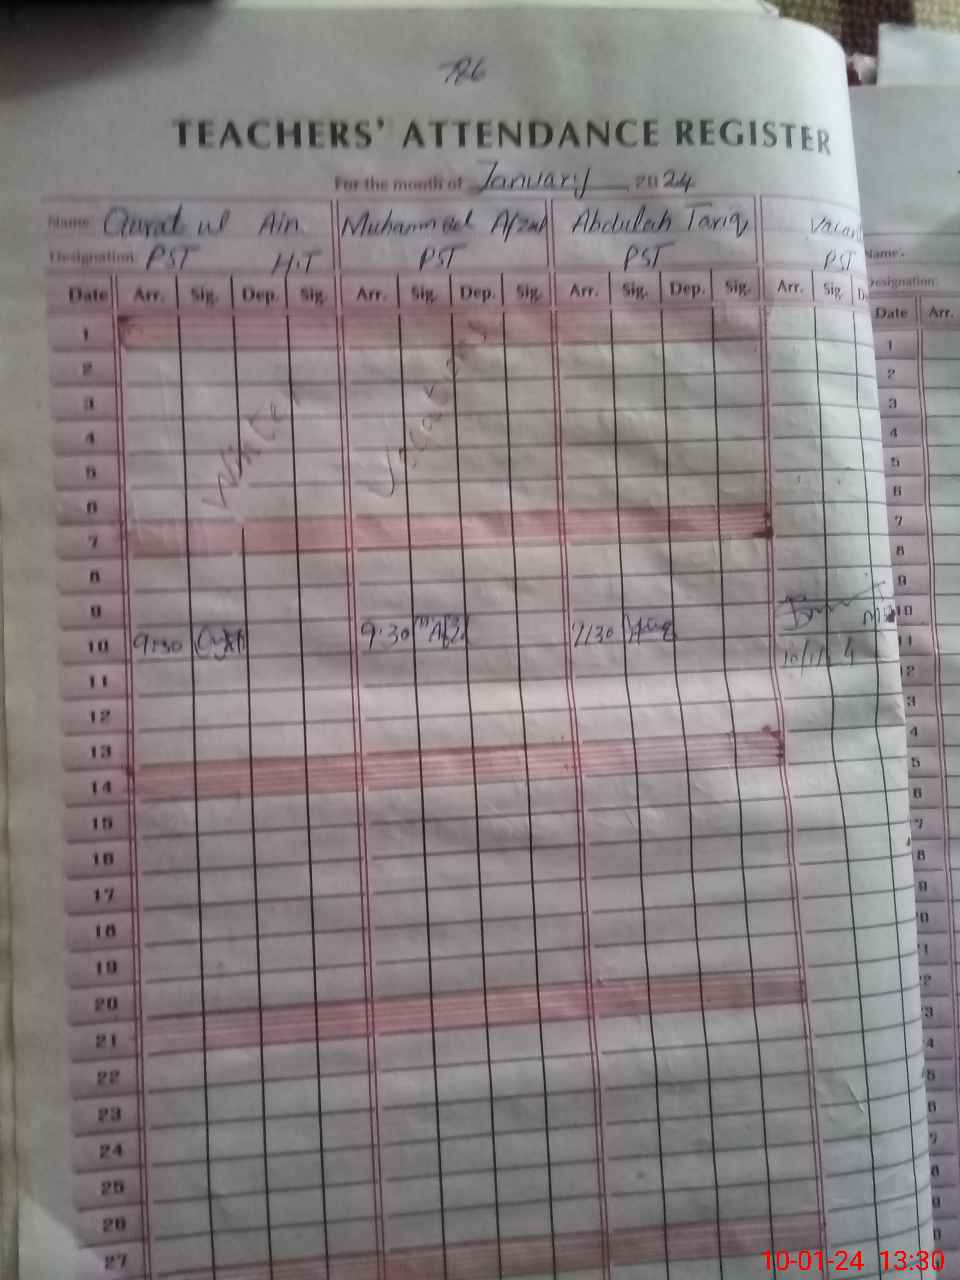 786
TEACHERS' ATTENDANCE REGISTER
For the month of January 2024
Name: Qurat ul Ain Muhammad Afzal Abdullah Tariq Vacant Name:
Designation: PST H.T PST PST PST Designation:
Date Arr. Sig. Dep. Sig. Arr. Sig. Dep. Sig. Arr. Sig. Dep. Sig. Arr. Sig. Date Arr.
1 1
2 2
3 3
4 4
5 5
6 6
7 7
Winter Vacations
8 8
9 9
10 9:30 9:30 9:30 10
10/1/24
11 11
12 12
13
14
15
16
17
18
19
20
21
22
23
24
25
26
27
10-01-24 13:30